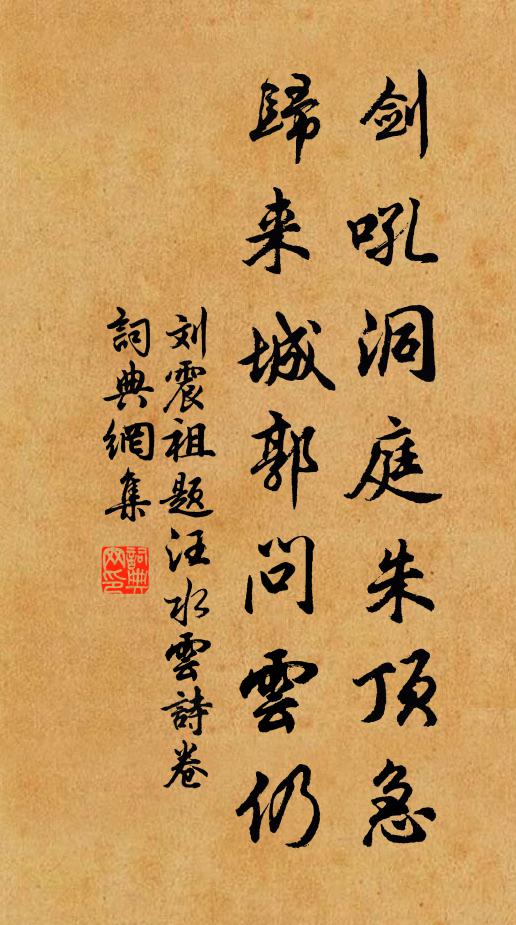 剑吼洞庭朱顶急
歸来城郭问雲仍
刘震祖题汪水雲詩卷
詞典網集
詞典网印